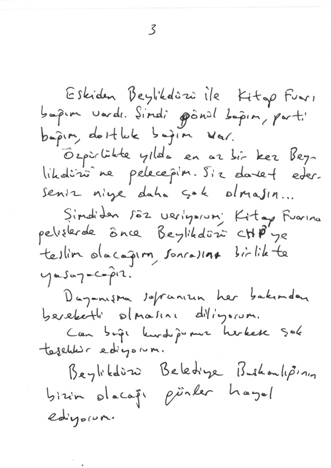 3
Eskiden Beylikdüzü ile Kitap Fuarı
bağım vardı. Şimdi gönül bağım, parti
bağım, dostluk bağım var.
Özgürlükte yılda en az bir kez Bey-
likdüzü'ne geleceğim. Siz davet eder-
seniz niye daha çok olmasın...
Şimdiden söz veriyorum, Kitap Fuarına
gelişlerde önce Beylikdüzü CHP'ye
teslim olacağım, sonrasını birlikte
yaşayacağız.
Dayanışma sofranızın her bakımdan
bereketli olmasını diliyorum.
Can bağı kurduğumuz herkese çok
teşekkür ediyorum.
Beylikdüzü Belediye Başkanlığının
bizim olacağı günler hayal
ediyorum.